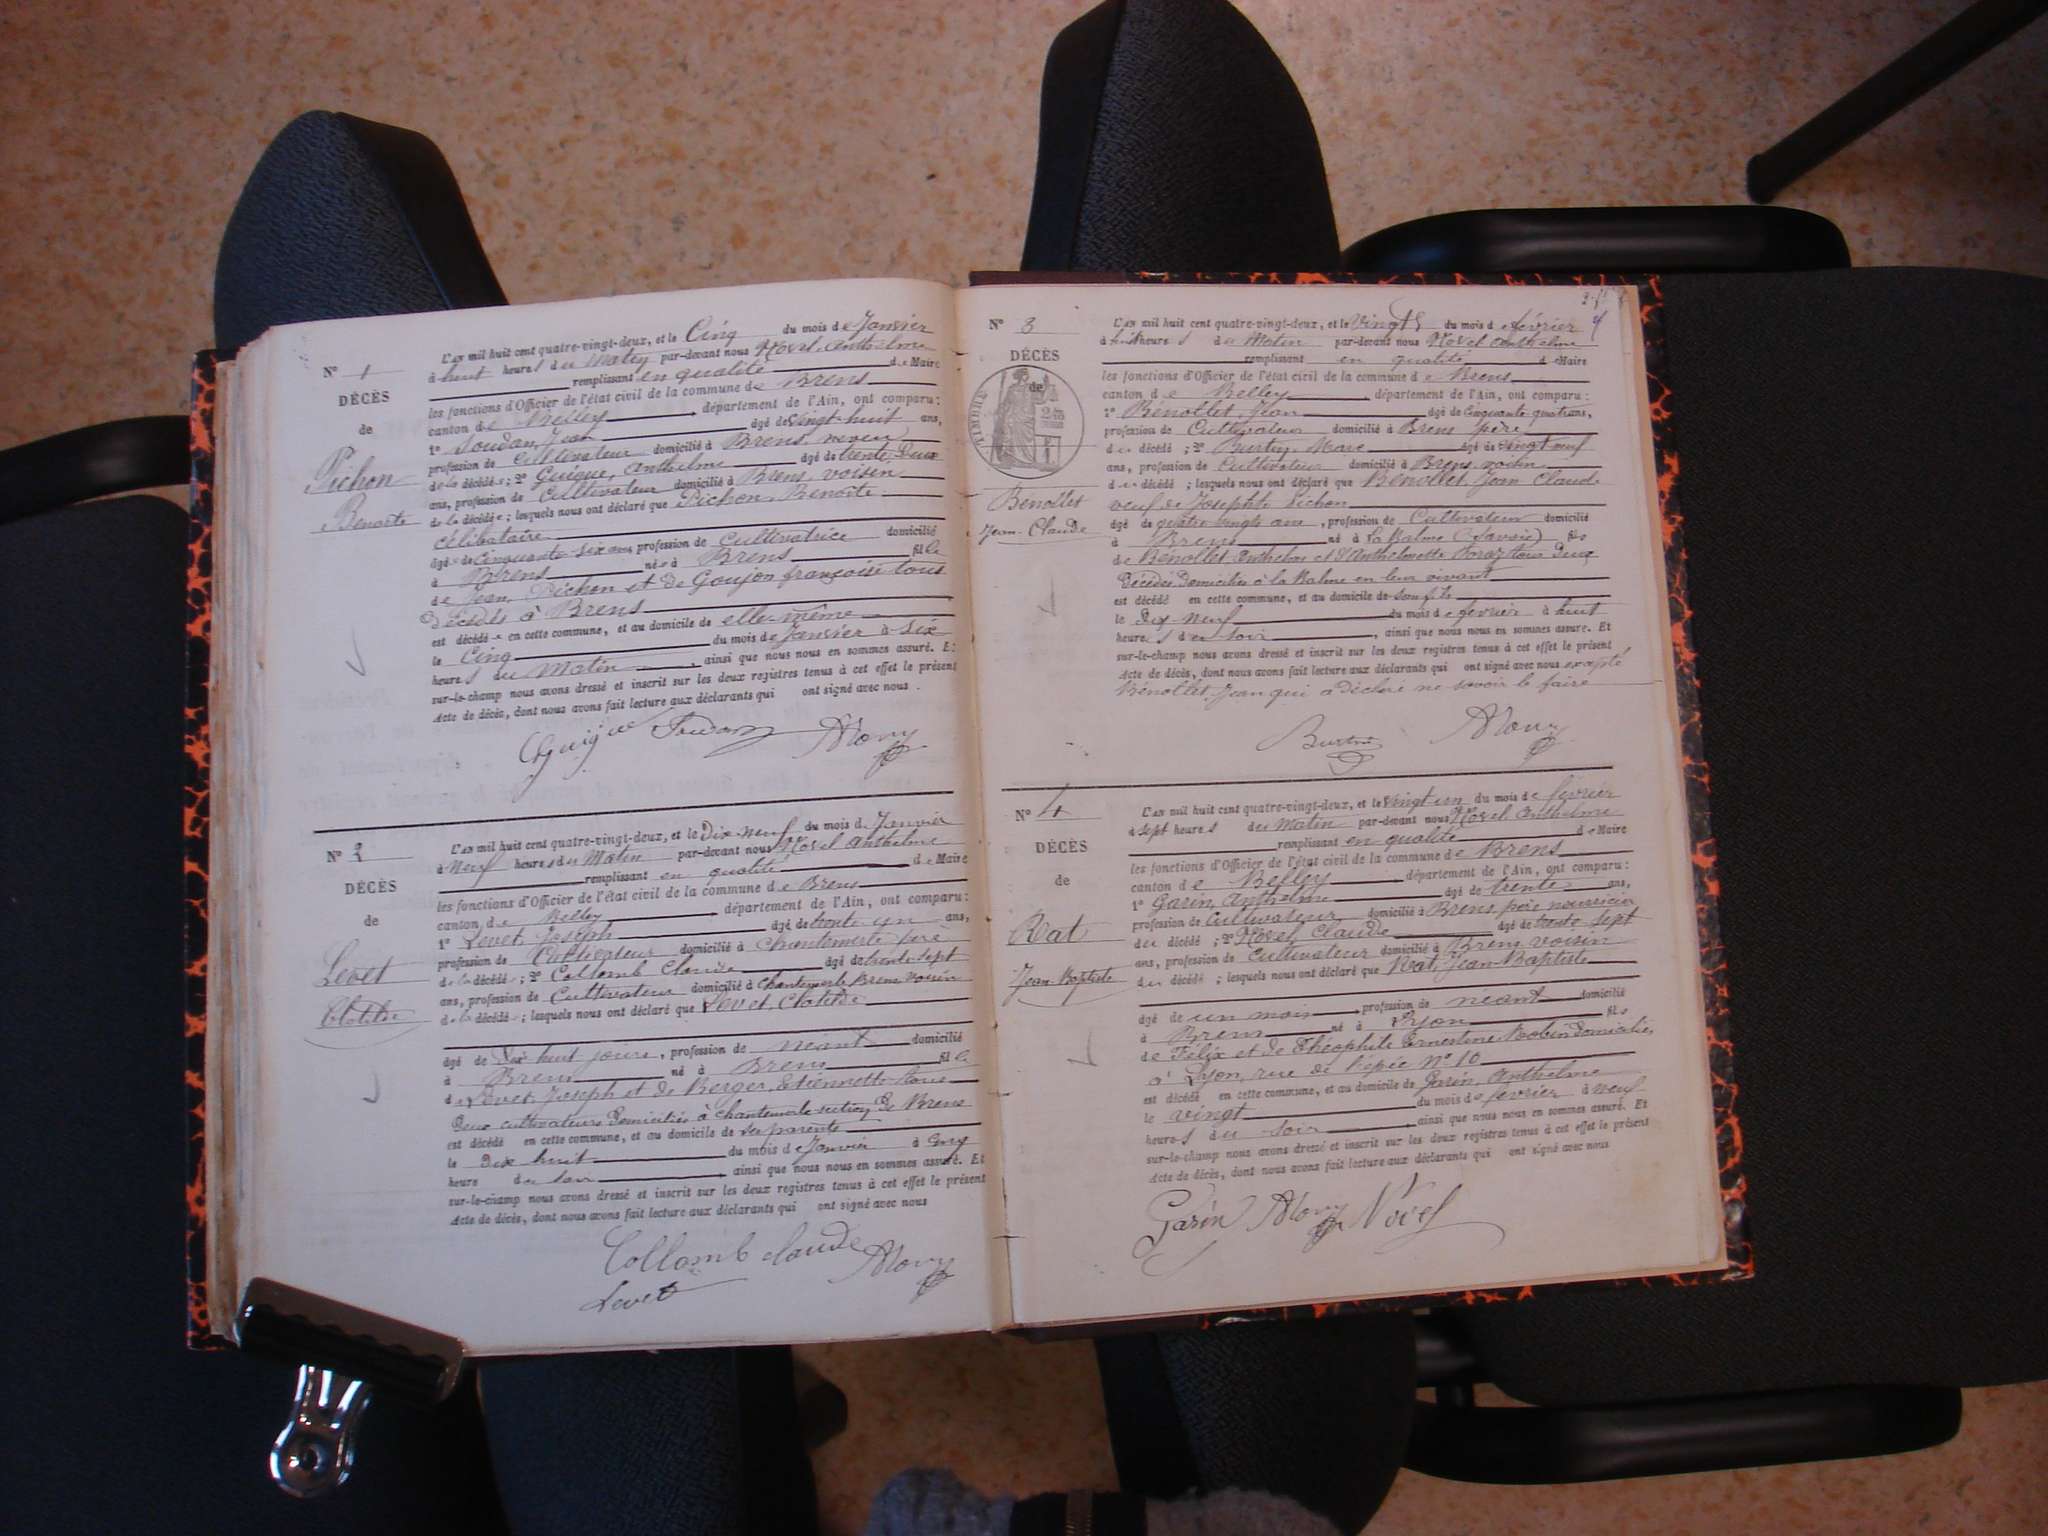 N° 1
DÉCÈS
de
Pichon
Benoite
L'AN mil huit cent quatre-vingt-deux, et le Cinq du mois de Janvier
à huit heures du Matin par-devant nous Hovel Anthelme
remplissant en qualité de Maire
les fonctions d'Officier de l'état civil de la commune de Brens
canton de Belley, département de l'Ain, ont comparu :
1° Soudan, Jean âgé de vingt-huit ans,
profession de Cultivateur domicilié à Brens neveu
de la décédée ; 2° Guigue, Anthelme âgé de trente deux
ans, profession de Cultivateur domicilié à Brens voisin
de la décédée ; lesquels nous ont déclaré que Pichon, Benoite
célibataire
âgée de Cinquante-six ans profession de Cultivatrice domicilié
à Brens née à Brens fille
de Jean, Pichon et de Goujon françoise tous
décédés à Brens
est décédée en cette commune, et au domicile de elle-même
le Cinq du mois de Janvier à six
heures du Matin, ainsi que nous nous en sommes assuré. Et
sur-le-champ nous avons dressé et inscrit sur les deux registres tenus à cet effet le présent
Acte de décès, dont nous avons fait lecture aux déclarants qui ont signé avec nous.
Guigue Soudan
N° 2
DÉCÈS
de
Levet
Clotilde
L'AN mil huit cent quatre-vingt-deux, et le Dix-neuf du mois de Janvier
à Neuf heures du Matin par-devant nous Hovel Anthelme
remplissant en qualité de Maire
les fonctions d'Officier de l'état civil de la commune de Brens
canton de Belley, département de l'Ain, ont comparu :
1° Levet, Joseph âgé de trente un ans,
profession de Cultivateur domicilié à Chantemerle père
de la décédée ; 2° Collomb Claude âgé de trente-sept
ans, profession de Cultivateur domicilié à Chantemerle Brens voisin
de la décédée ; lesquels nous ont déclaré que Levet, Clotilde
âgé de Dix huit jours, profession de néant domicilié
à Brens né à Brens fille
de Levet, Joseph et de Berger, Etiennette tous
deux cultivateurs domiciliés à Chantemerle section de Brens
est décédé en cette commune, et au domicile de ses parents
le Dix huit du mois de Janvier à Cinq
heure du soir, ainsi que nous nous en sommes assuré. Et
sur-le-champ nous avons dressé et inscrit sur les deux registres tenus à cet effet le présent
Acte de décès, dont nous avons fait lecture aux déclarants qui ont signé avec nous
Collomb claude
Levet
N° 3
DÉCÈS
de
TIMBRE
Benollet
Jean-Claude
L'AN mil huit cent quatre-vingt-deux, et le Vingt du mois de février
à huit heures du Matin par-devant nous Hovel Anthelme
remplissant en qualité de Maire
les fonctions d'Officier de l'état civil de la commune de Brens
canton de Belley, département de l'Ain, ont comparu :
1° Benollet, Jean âgé de Cinquante-quatre ans,
profession de Cultivateur domicilié à Brens
du décédé ; 2° Burtin, Marc âgé de vingt neuf
ans, profession de Cultivateur domicilié à Brens, voisin
du décédé ; lesquels nous ont déclaré que Benollet, Jean Claude
veuf de Josephte Pichon
âgé de quatre-vingts ans, profession de Cultivateur domicilié
à Brens né à La Balme (Savoie) fils
de Benollet Anthelme et d'Anthelmette tous deux
décédés domiciliés à la Balme en leur vivant
est décédé en cette commune, et au domicile de son fils
le Dix-Neuf du mois de février à huit
heures du soir, ainsi que nous nous en sommes assure. Et
sur-le-champ nous avons dressé et inscrit sur les deux registres tenus à cet effet le présent
Acte de décès, dont nous avons fait lecture aux déclarants qui ont signé avec nous excepté
Bénollet, Jean qui a déclaré ne savoir le faire
Burtin
N° 4
DÉCÈS
de
Rat
Jean-Baptiste
L'AN mil huit cent quatre-vingt-deux, et le vingt-un du mois de février
à sept heures du Matin par-devant nous Hovel Anthelme
remplissant en qualité de Maire
les fonctions d'Officier de l'état civil de la commune de Brens
canton de Belley, département de l'Ain, ont comparu :
1° Garin, Anthelme âgé de trente ans,
profession de Cultivateur domicilié à Brens, père nourricier
du décédé ; 2° Hovel, Claude âgé de trente-sept
ans, profession de Cultivateur domicilié à Brens voisin
du décédé ; lesquels nous ont déclaré que Rat, Jean-Baptiste
âgé de un mois, profession de néant domicilié
à Brens né à Lyon fils
de Félix et de Théophile Ernestine Robin domiciliés
à Lyon, rue de l'épée N° 10
est décédé en cette commune, et au domicile de Garin, Anthelme
le vingt du mois de février à neuf
heures du soir, ainsi que nous nous en sommes assuré. Et
sur-le-champ nous avons dressé et inscrit sur les deux registres tenus à cet effet le présent
Acte de décès, dont nous avons fait lecture aux déclarants qui ont signé avec nous
Garin